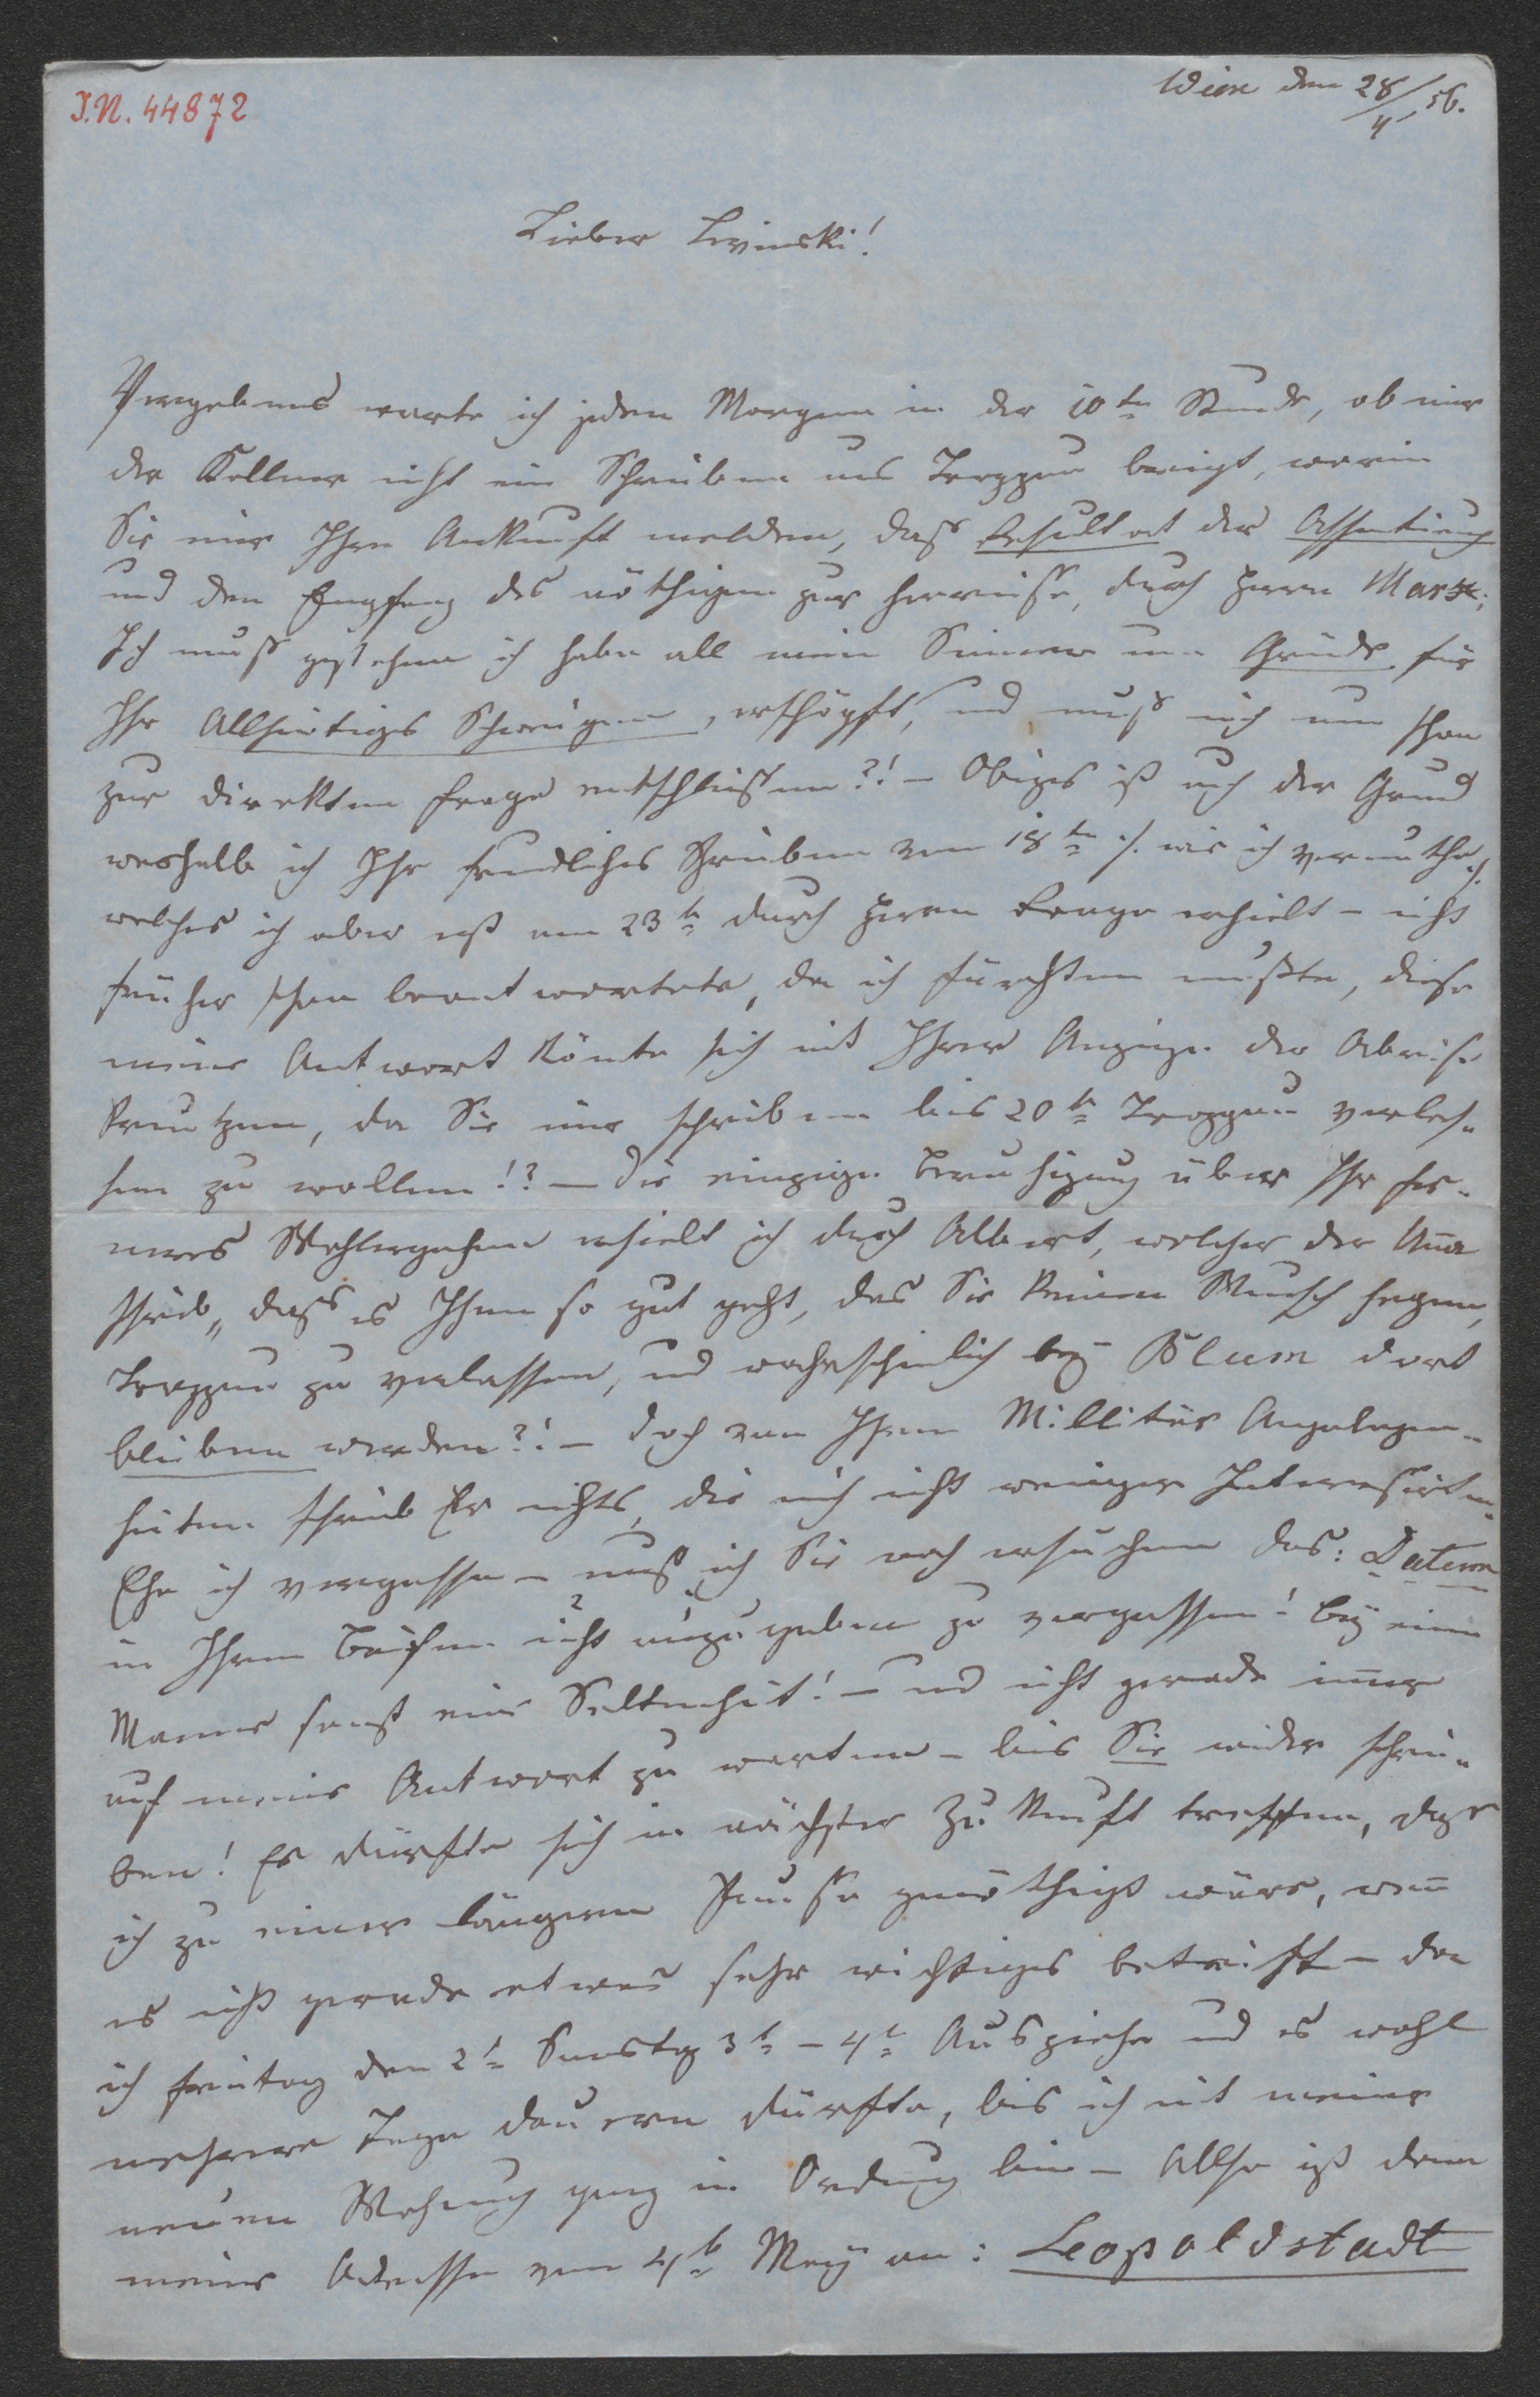 I.N. 44872
Wien den 28/4 56.
Lieber Levinski!
Vergebens warte ich jeden Morgen in der 10te Stunde, ob mir
der Kellner nicht ein Schreiben aus Troppau bringt, worin
Sie mir Ihre Ankunft melden, daß Resultat der Assentirung
und den Empfang des nöthigen zur Herreise, durch Herrn Marx;
Ich muß gestehen ich habe all mein Sinnen um Gründe für
Ihr Allseitiges Schweigen, erschöpft, und muß mich nun schon
zur direkten Frage entschließen?! – Obiges ist auch der Grund
weshalb ich Ihr freundliches Schreiben vom 18te ./. wie ich vermuthe ./.
welches ich aber erst am 23te durch Herrn erhielt – nicht
früher schon beantwortete, da ich fürchten mußte, diese
meine Antwort könte sich mit Ihrer Anzeige der Abreise
kreutzen, da Sie mir schrieben bis 20te Troppau verlas-
sen zu wollen!? – Die einzige Beruhigung über Ihr fer-
neres Wohlergehen erhielt ich durch Albert, welcher der Ana
schrieb, „daß es Ihnen so gut geht, das Sie keinen Wunsch hegen,
Troppau zu verlassen, und wahrscheinlich bey Blum dort
bleiben werden?! – Doch von Ihren Millitär Angelegen-
heiten schrieb Er nichts, die mich nicht weniger Interesirten.
Ehe ich vergesse – muß ich Sie noch ersuchen das: Datum
in Ihren Briefen nicht anzugeben zu vergessen! bey einem
Manne sonst eine Seltenheit! – und nicht gerade imer
auf meine Antwort zu warten – bis Sie wieder schrei-
ben! Es dürfte sich in nächster Zukunft treffen, daß
ich zu einer längern Pause genöthigt wäre, wen
es nicht gerade etwas sehr wichtiges betrifft – da
ich Freitag den 2te Samstag 3te – 4te Ausziehe und es wohl
mehrere Tage dauern dürfte, bis ich mit meiner
neuen Wohnung ganz in Ordnung bin – Allso ist denn
meine Adresse vom 4te Mey an: Leopoldstadt